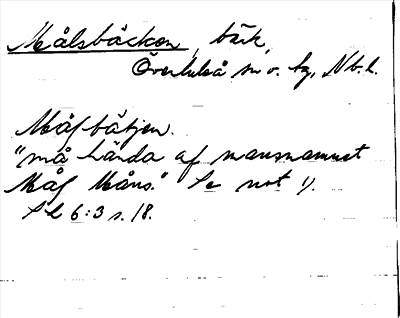 Målsbäcken, bäck,
Överluleå sn o. by, Nb. l.
Mås bätjen.
"må hända af mansnamnet
Mås Måns." Se not 1).
SL 6:3 s. 18.